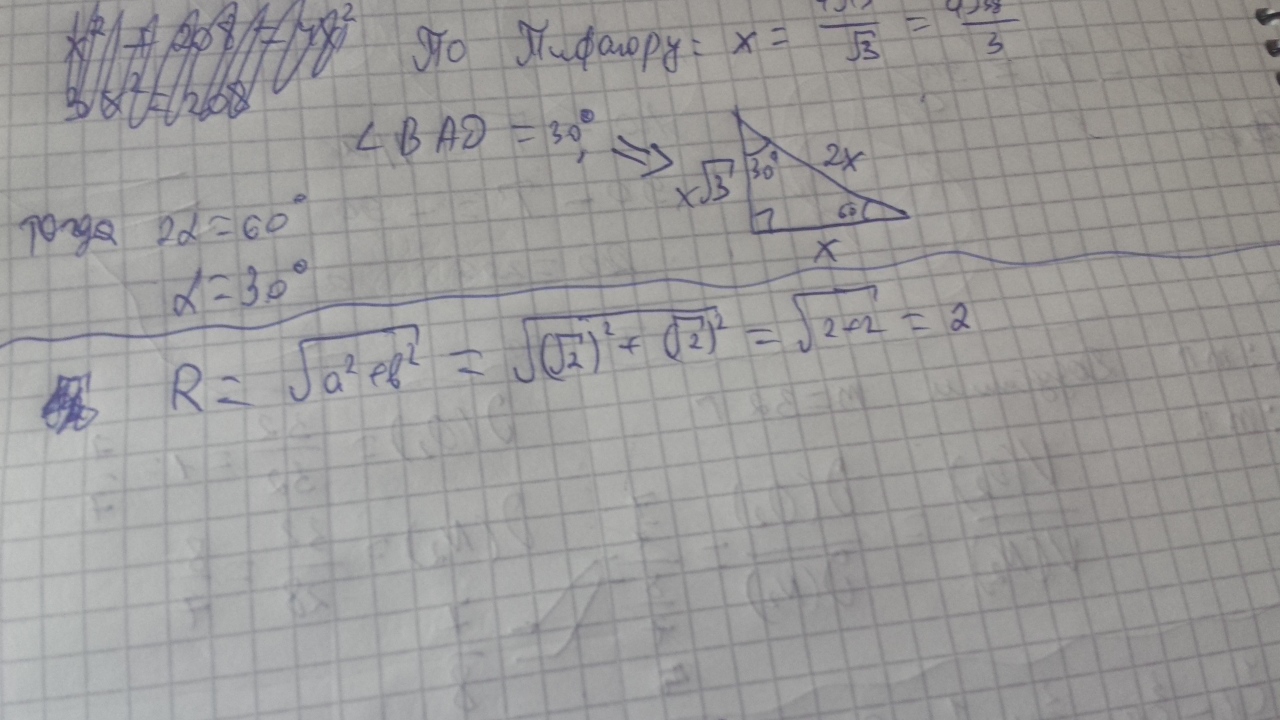 По Пифагору: x = 4√13/√3 = 4√39/3
∠BAD = 30°, ⇒
30° 2x
x√3
60
x
тогда 2α = 60°
α = 30°
R = √a² + b² = √(√2)² + (√2)² = √2+2 = 2